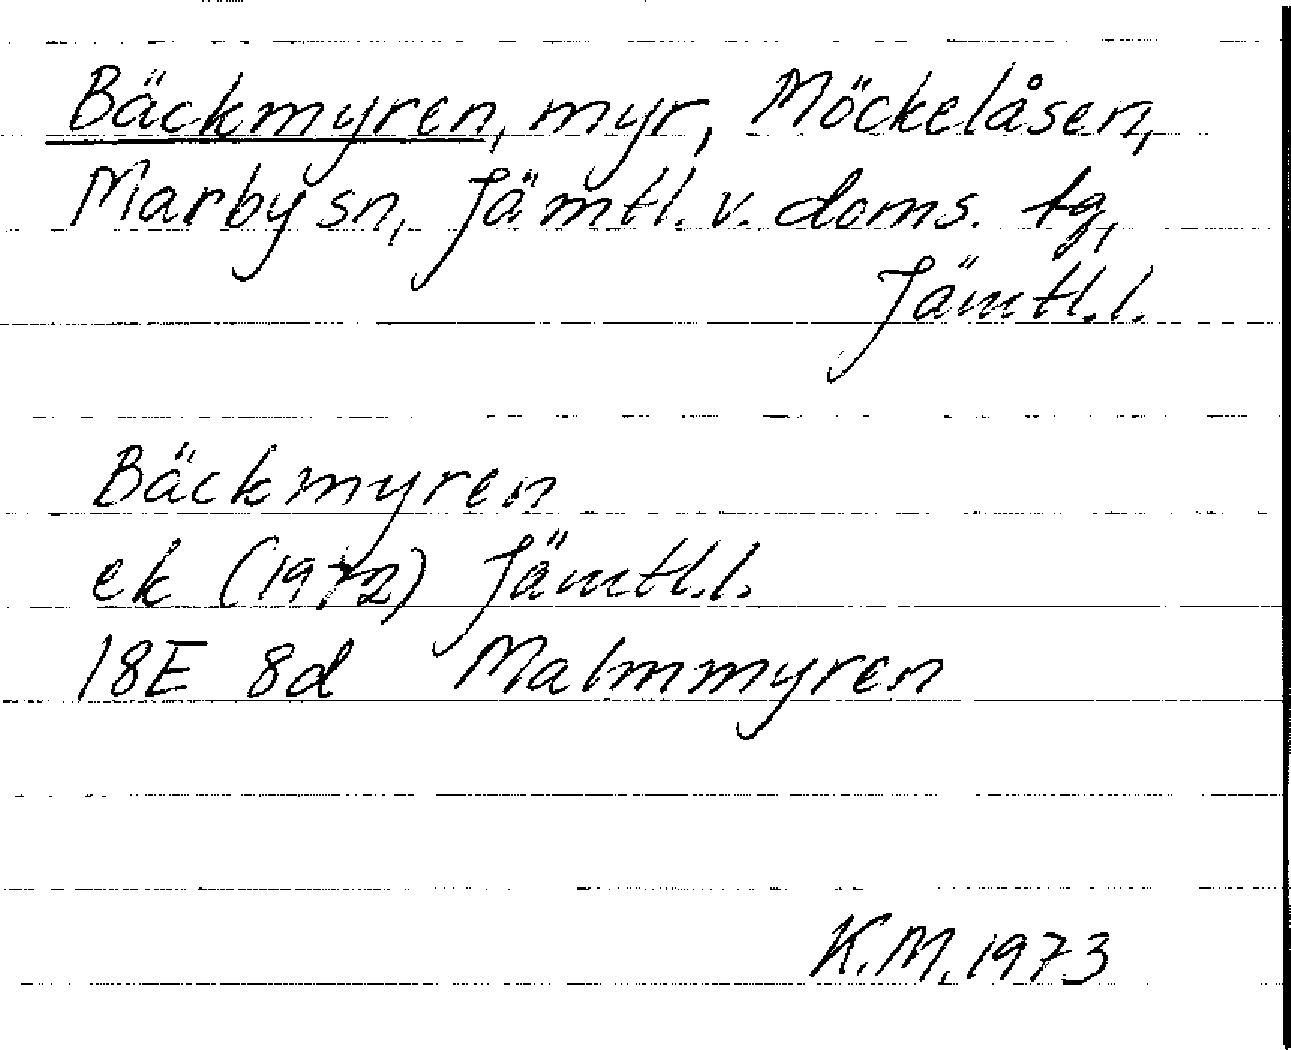 Bäckmyren, myr, Möckelåsen,
Marby sn, Jämtl. v. doms. tg,
Jämtl. l.
Bäckmyren
ek (1972) Jämtl. l.
18E 8d Malmmyren
K.M. 1973